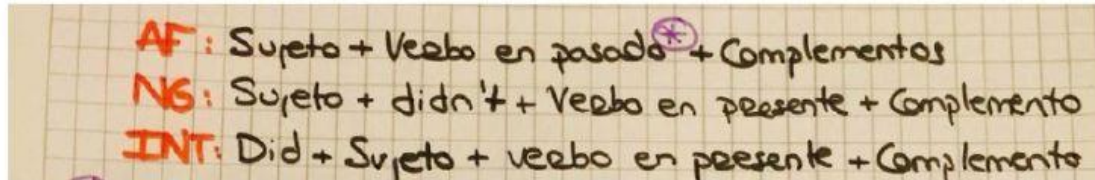 AF: Sujeto + Verbo en pasado* + Complementos
NG: Sujeto + didn't + Verbo en presente + Complemento
INT: Did + Sujeto + verbo en presente + Complemento